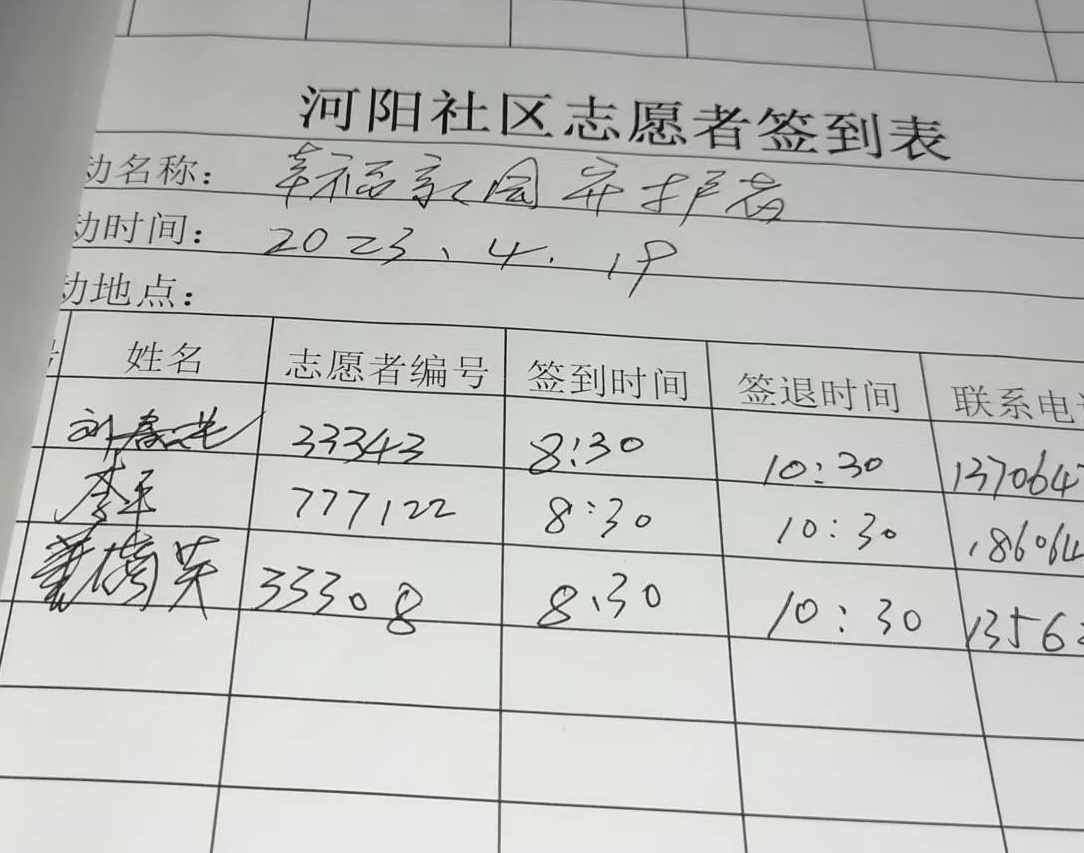 河阳社区志愿者签到表
动名称： 幸福家园守护者
动时间： 2023、4.19
动地点：
号 姓名 志愿者编号 签到时间 签退时间 联系电
刘春 33343 8:30 10:30 1370647
李玉 777122 8:30 10:30 18606
董 英 33308 8:30 10:30 13563